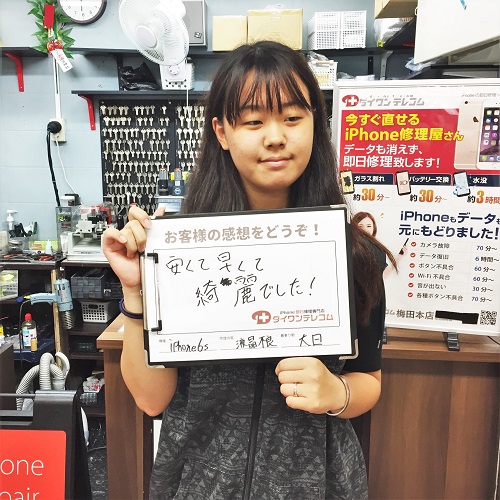 お客様の感想をどうぞ！
安くて早くて
綺麗でした！
iPhone修理専門店
タイワンテレコム
iPhone6s
液晶根
大日
タイワンテレコム
今すぐ直せる
iPhone修理屋さん
データも消えず、
即日修理致します！
ガラス割れ
バッテリー交換
水没
約30分~
約30分~
約3時間
iPhoneもデータも
元にもどりました！
カメラ故障 70分~
データ復旧 6時間~
ボタン不具合 60分~
Wi-Fi 不具合 60分~
音が出ない 30分~
各種ボタン不具合 70分~
梅田本店
one
pair